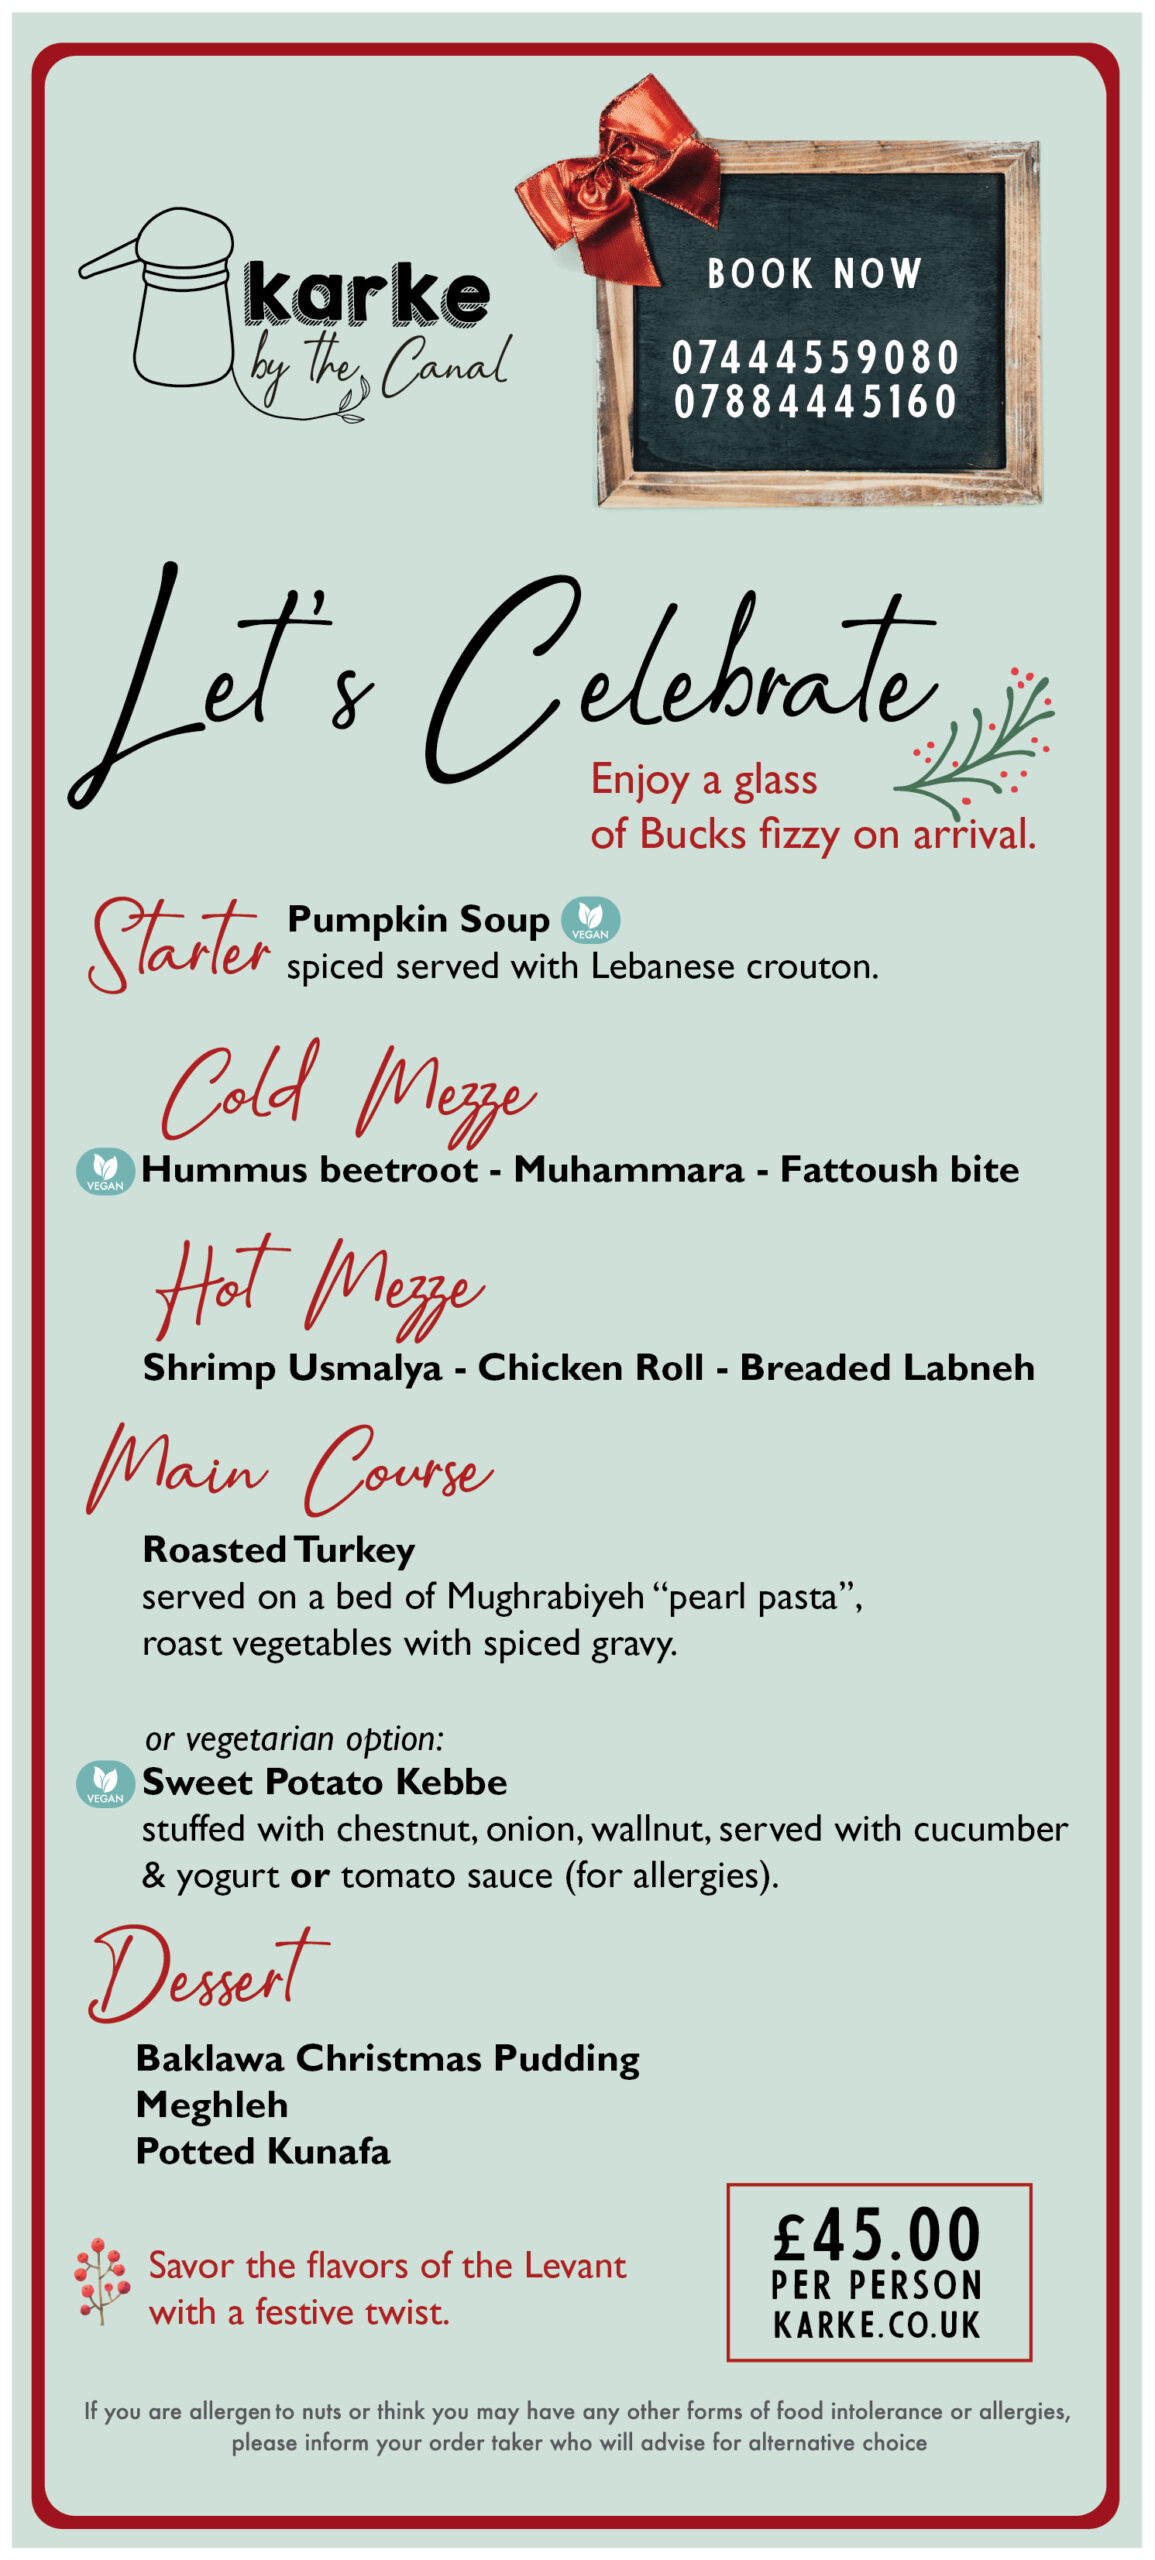 karke
by the Canal
BOOK NOW
07444559080
07884445160
Let's Celebrate
Enjoy a glass
of Bucks fizzy on arrival.
Starter
Pumpkin Soup VEGAN
spiced served with Lebanese crouton.
Cold Mezze
VEGAN Hummus beetroot - Muhammara - Fattoush bite
Hot Mezze
Shrimp Usmalya - Chicken Roll - Breaded Labneh
Main Course
Roasted Turkey
served on a bed of Mughrabiyeh “pearl pasta”,
roast vegetables with spiced gravy.
or vegetarian option:
VEGAN Sweet Potato Kebbe
stuffed with chestnut, onion, wallnut, served with cucumber
& yogurt or tomato sauce (for allergies).
Dessert
Baklawa Christmas Pudding
Meghleh
Potted Kunafa
Savor the flavors of the Levant
with a festive twist.
£45.00
PER PERSON
KARKE.CO.UK
If you are allergen to nuts or think you may have any other forms of food intolerance or allergies,
please inform your order taker who will advise for alternative choice